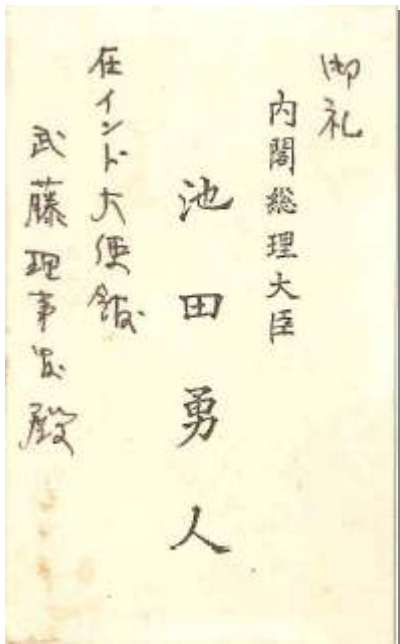 御礼
内閣総理大臣
池田勇人
在インド大使館
武藤理事官殿